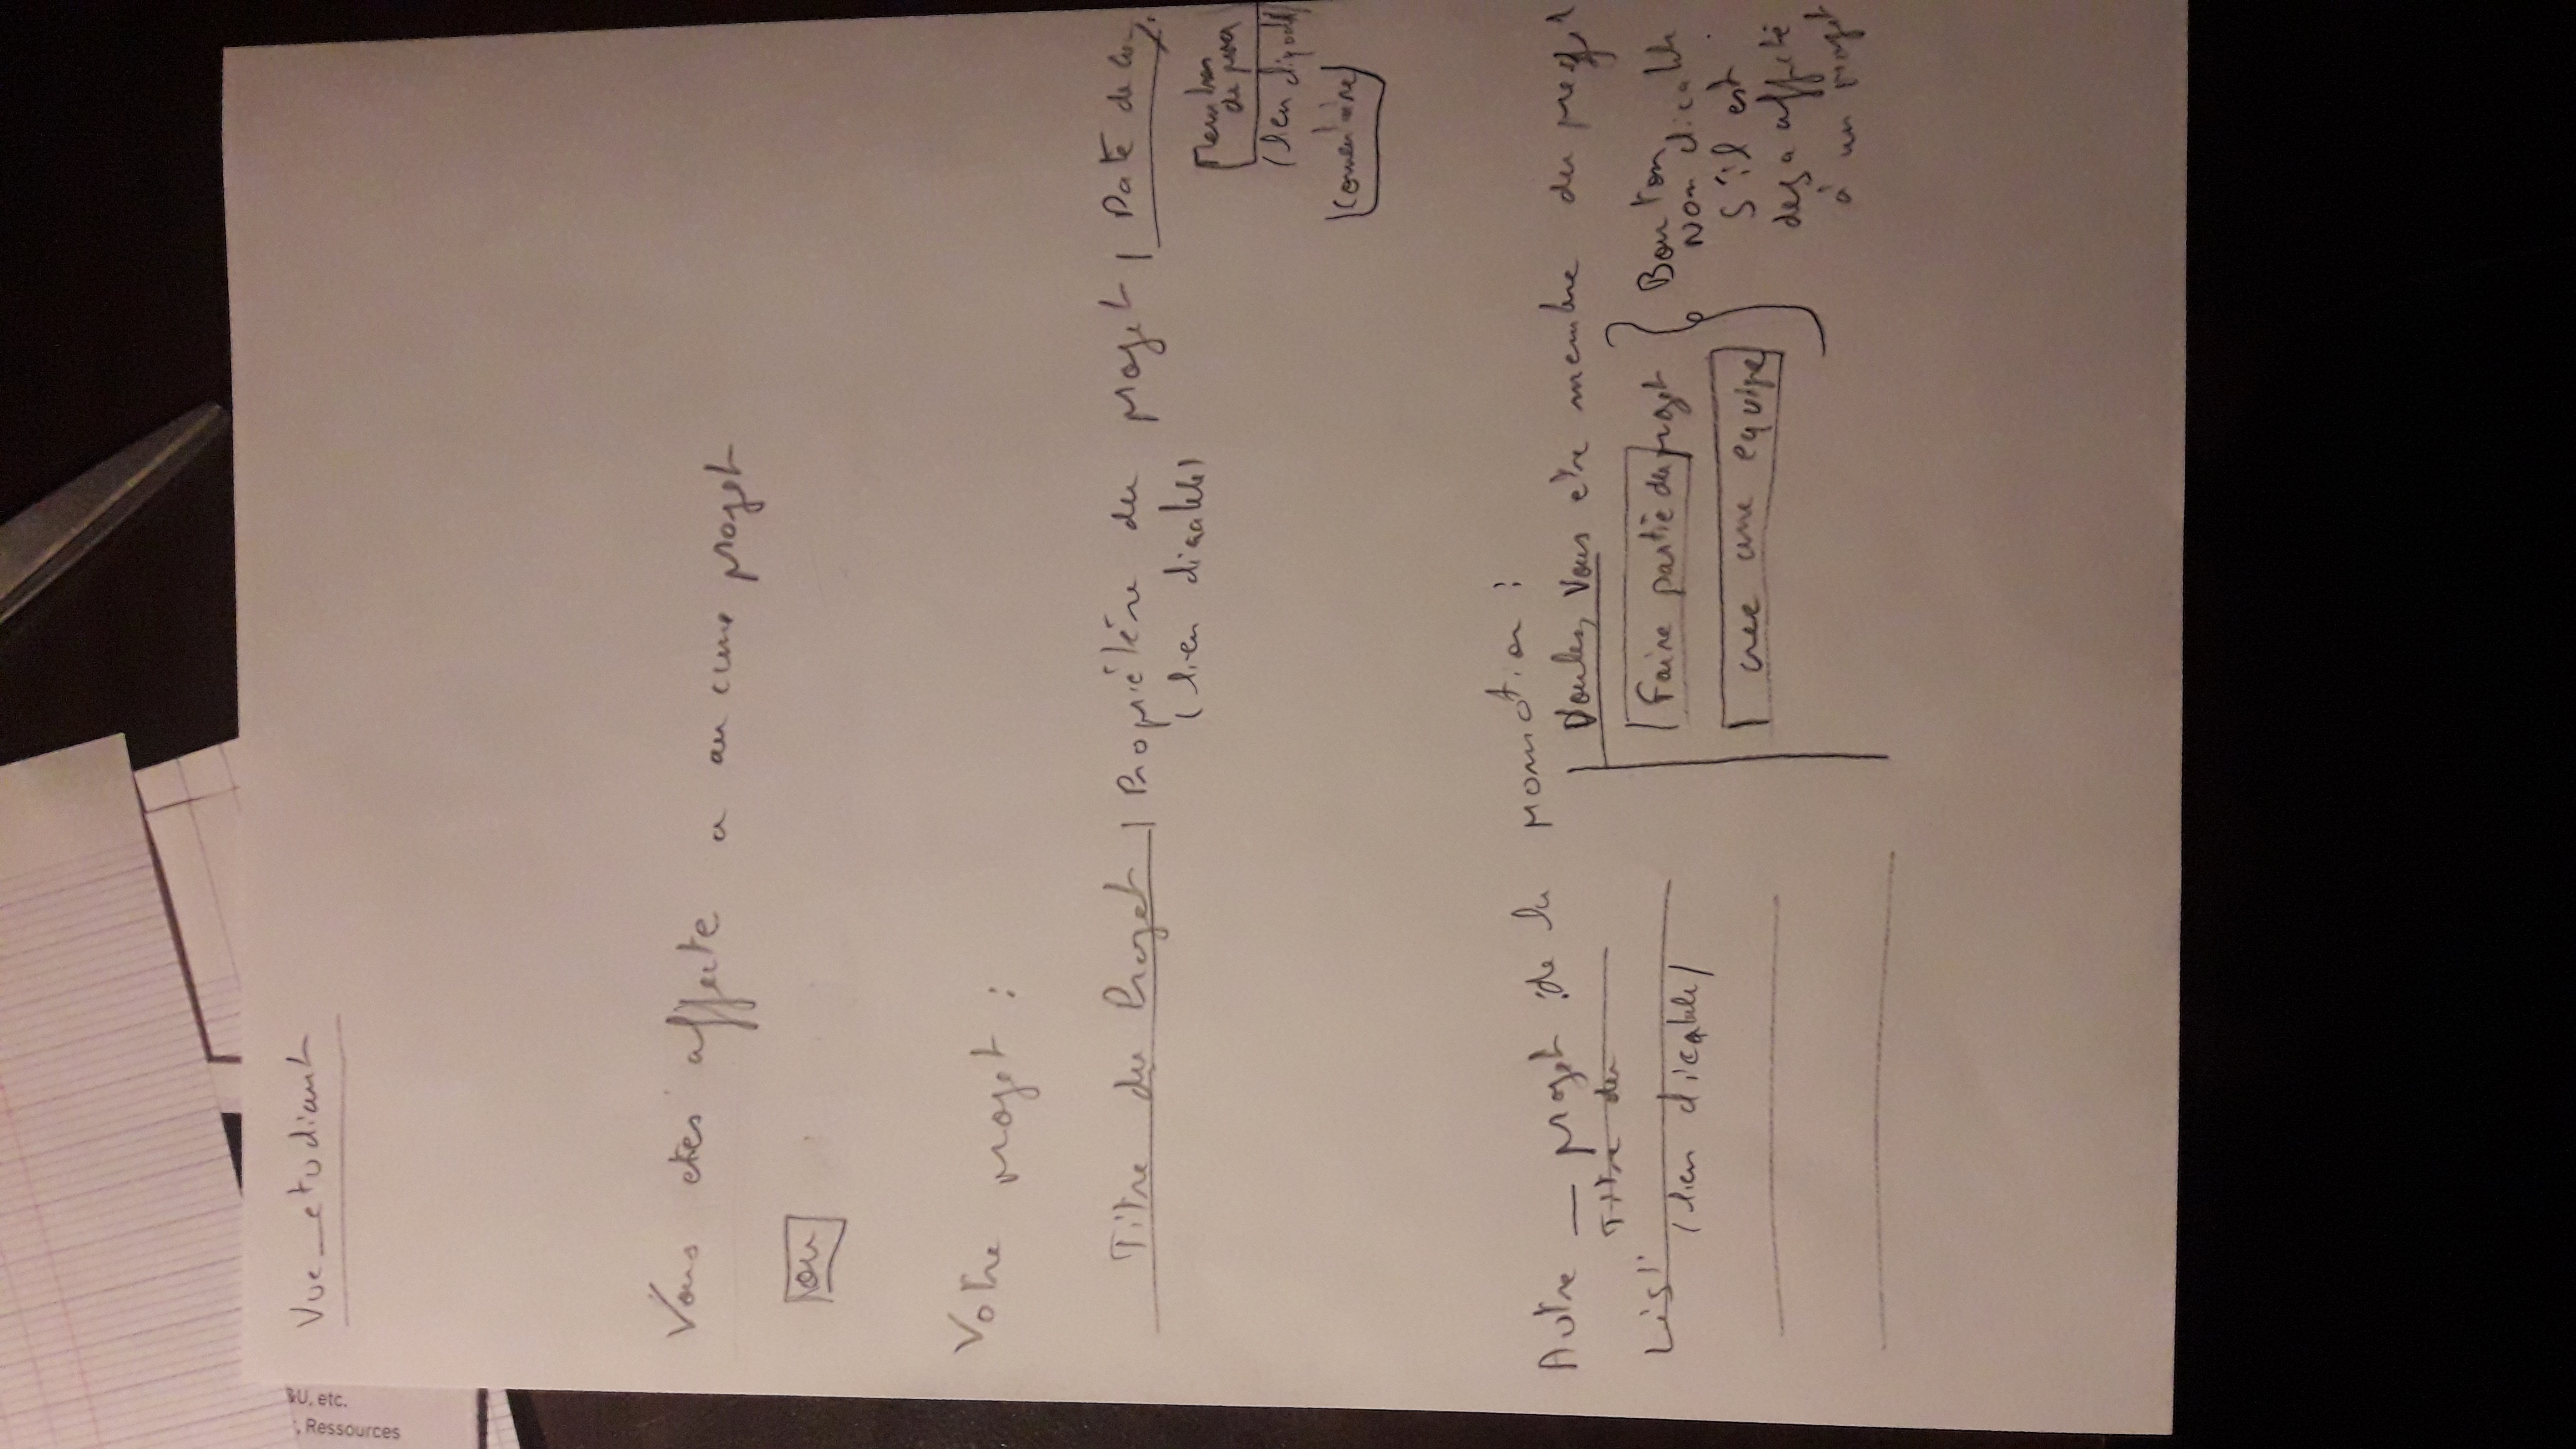 Vue_etudiant
Vous etes affecte a aucune projet
ou
Votre projet :
Titre du Projet | Propriétére du projet | Date de
(lien clicable)
Membres
(lien
Comentaire
Autre _ projet de la promotion :
Titre du
List
(lien clicable)
Voulez Vous etre membre du projet
Faire partie du projet
cree une equipe
Boutton
Non clicable
s'il est
deja affecté
à un projet
; Ressources
BU, etc.